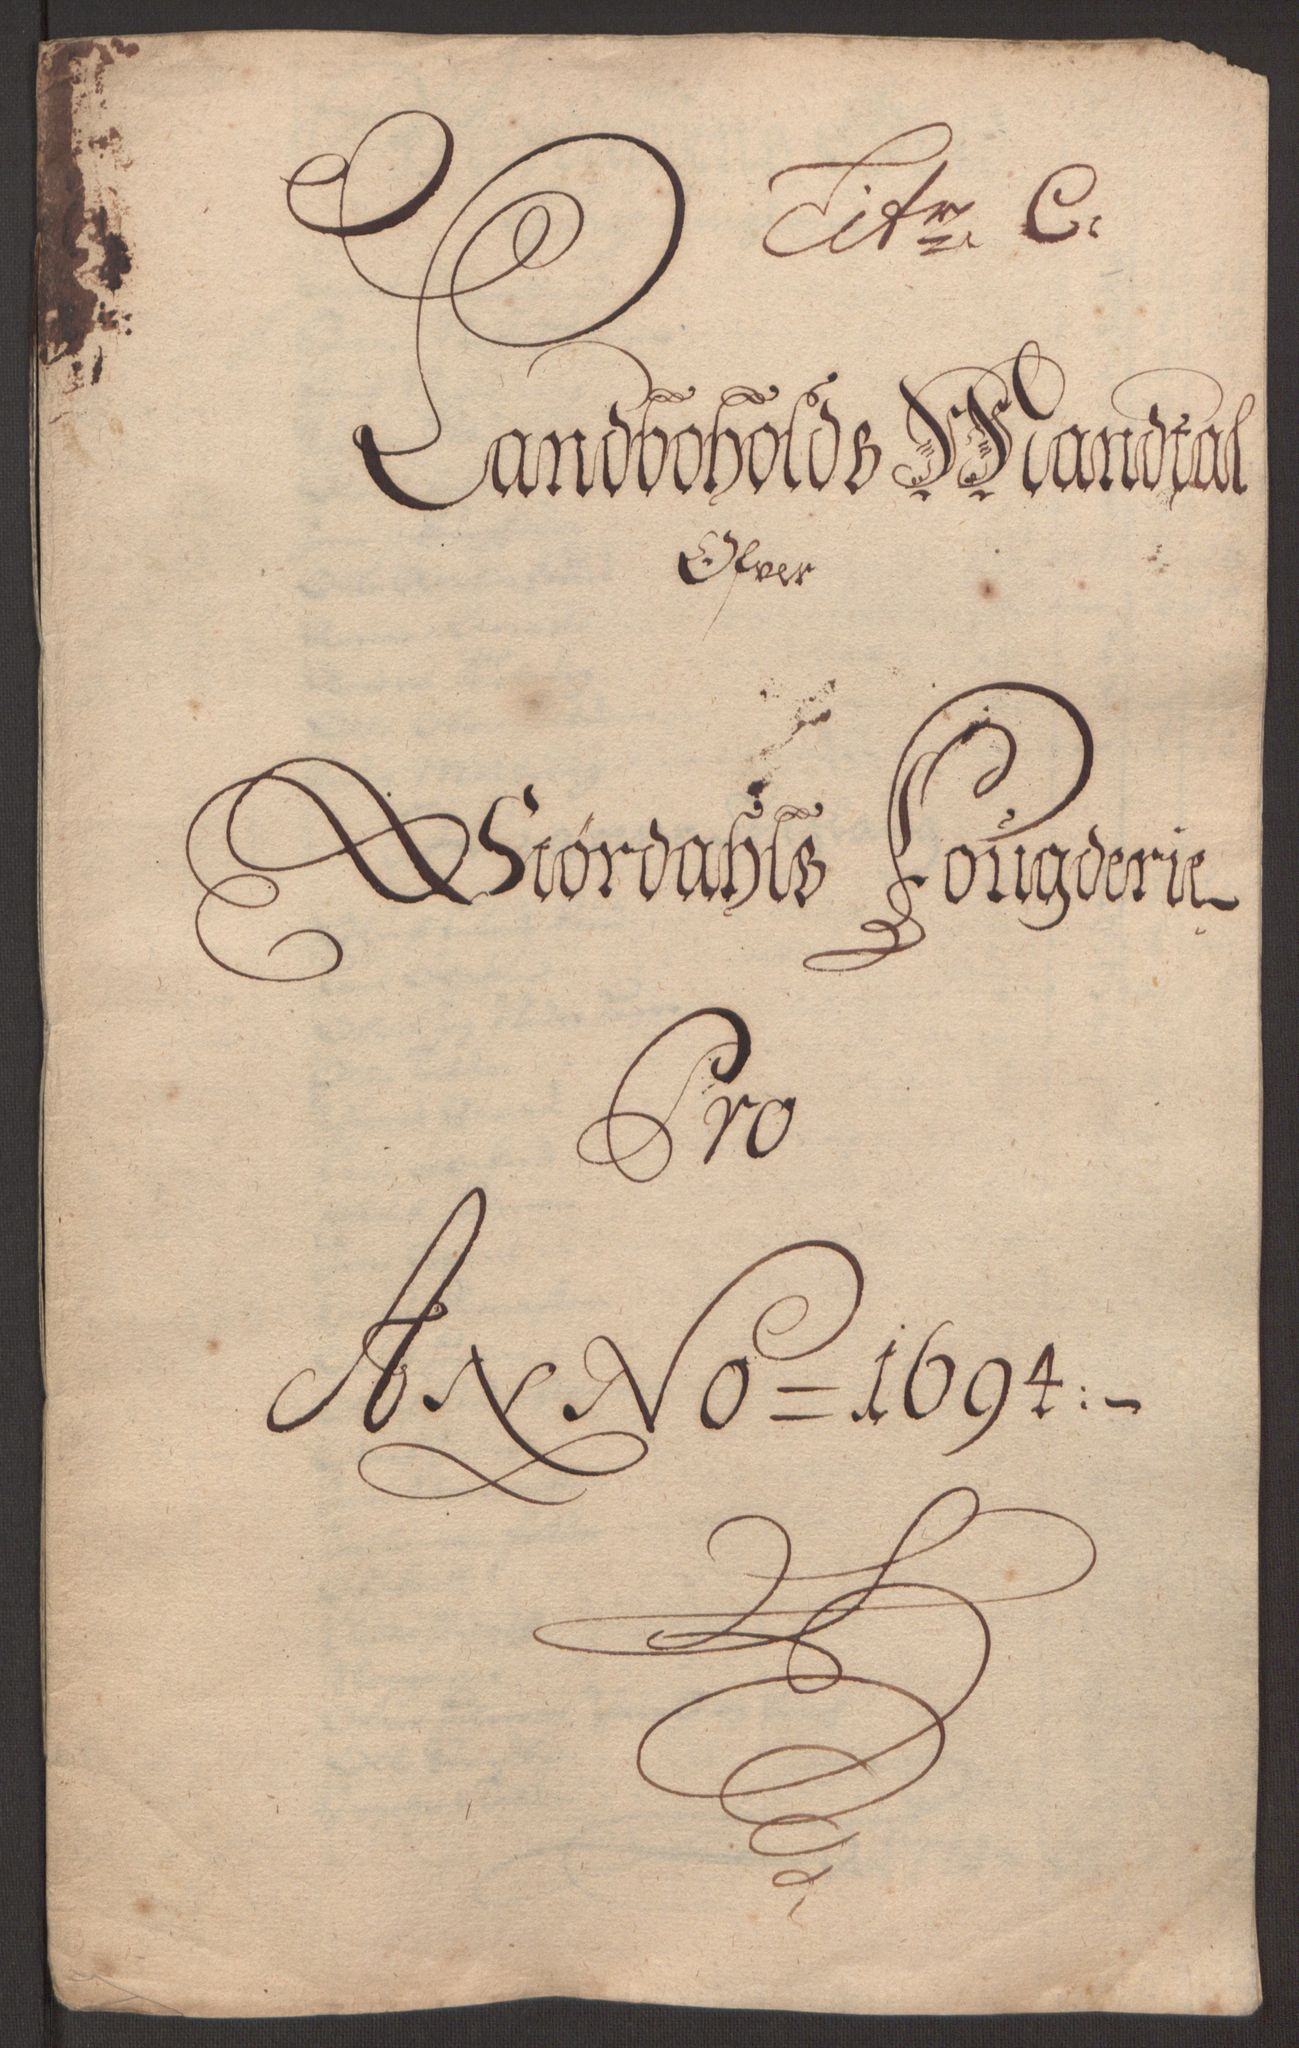 Litr C.
Landboholds Mandtal
Ofver
Størdahls Fougderie
Pro
ANNo = 1694:-